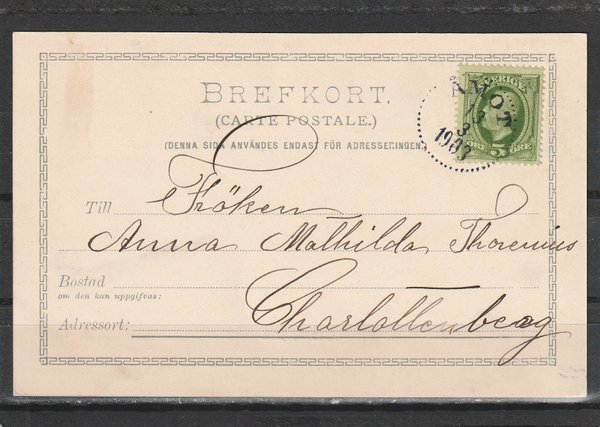 BREFKORT.
(CARTE POSTALE.)
(DENNA SIDA ANVÄNDES ENDAST FÖR ADRESSERINGEN)
SVERIGE
5 ÖRE
ÅMOT
3
Till Fröken
Anna Mathilda Thorenius
Bostad
om den kan uppgifvas:
Adressort: Charlottenberg